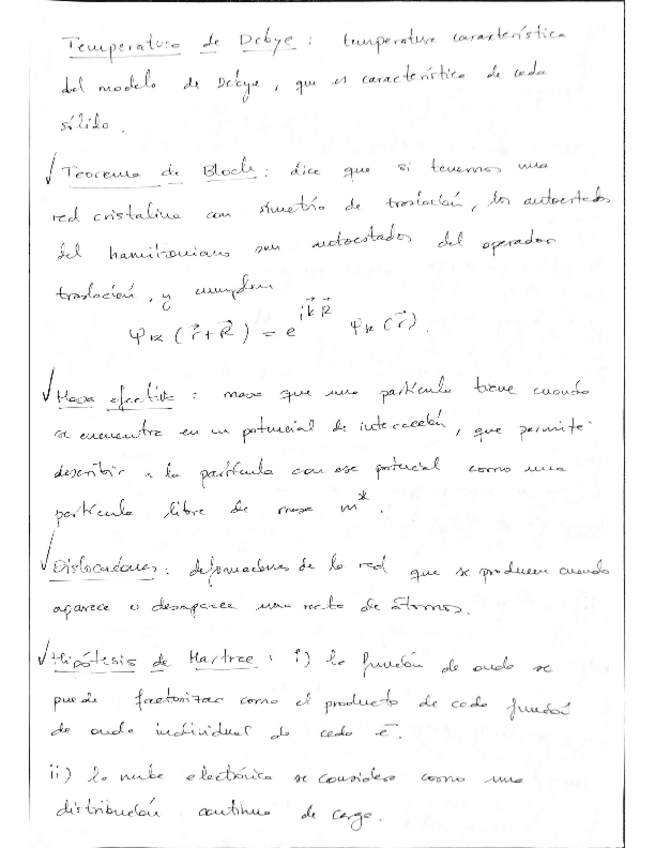 Temperatura de Debye: temperatura característica
del modelo de Debye, que es característica de cada
sólido.
√ Teorema de Bloch: dice que si tenemos una
red cristalina con simetría de traslación, los autoestados
del hamiltoniano son autoestados del operador
traslación, y cumplen
ψ_k (r⃗+R⃗) = e^{ik⃗R⃗} ψ_k (r⃗).
√ Masa efectiva: masa que una partícula tiene cuando
se encuentra en un potencial de interacción, que permite
describir a la partícula con ese potencial como una
partícula libre de masa m*.
√ Dislocaciones: deformaciones de la red que se producen cuando
aparece o desaparece una recta de átomos.
√ Hipótesis de Hartree: i) la función de onda se
puede factorizar como el producto de cada función
de onda individual de cada e⁻.
ii) la nube electrónica se considera como una
distribución continua de carga.